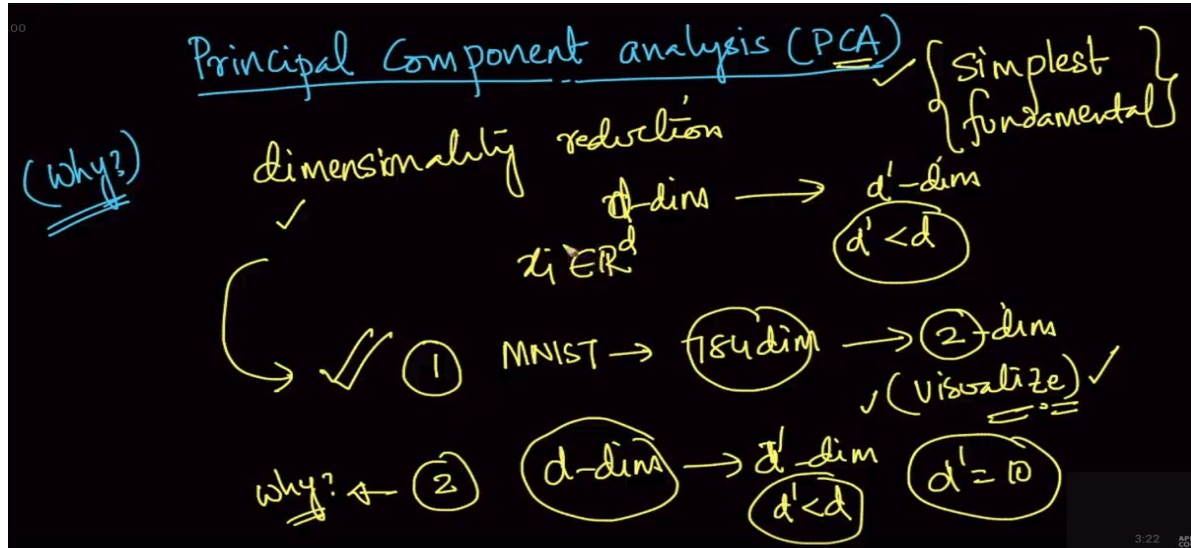 00
Principal Component analysis (PCA)
simplest
fundamental
(Why?)
dimensionality reduction
d-dims → d'-dims
d' < d
xi ∈ ℝ^d
① MNIST → 784 dim → ②-dims
(visualize)
why? ← ② d-dims → d'-dim d' = 10
d' < d
3:22